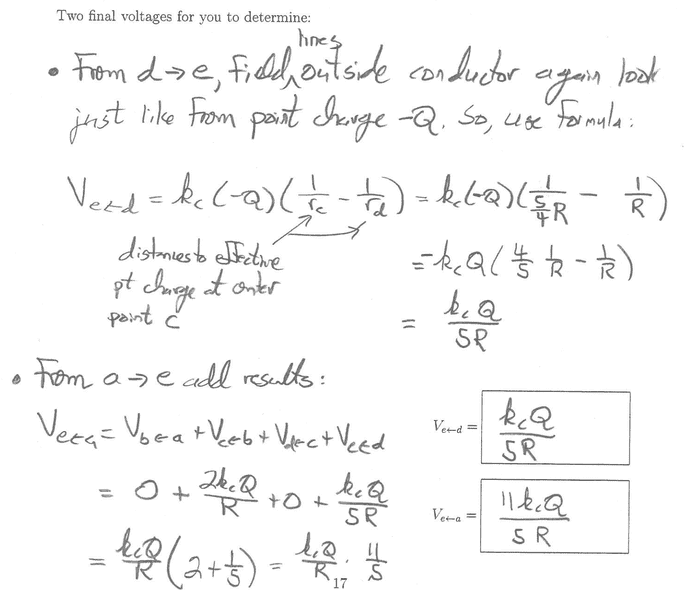 Two final voltages for you to determine:
lines
• From d → e, field outside conductor again look
just like from point charge -Q. So, use formula:
V_{e←d} = k_c (-Q) (1/r_c - 1/r_d) = k_c (-Q) (1/(5/4 R) - 1/R)
distances to effective
pt charge at center
point C
= -k_c Q (4/5 1/R - 1/R)
= k_c Q / 5R
• From a → e add results:
V_{e←a} = V_{b←a} + V_{c←b} + V_{d←c} + V_{e←d}
= 0 + 2k_c Q / R + 0 + k_c Q / 5R
= k_c Q / R (2 + 1/5) = k_c Q / R · 11/5
V_{e←d} = k_c Q / 5R
V_{e←a} = 11 k_c Q / 5R
17